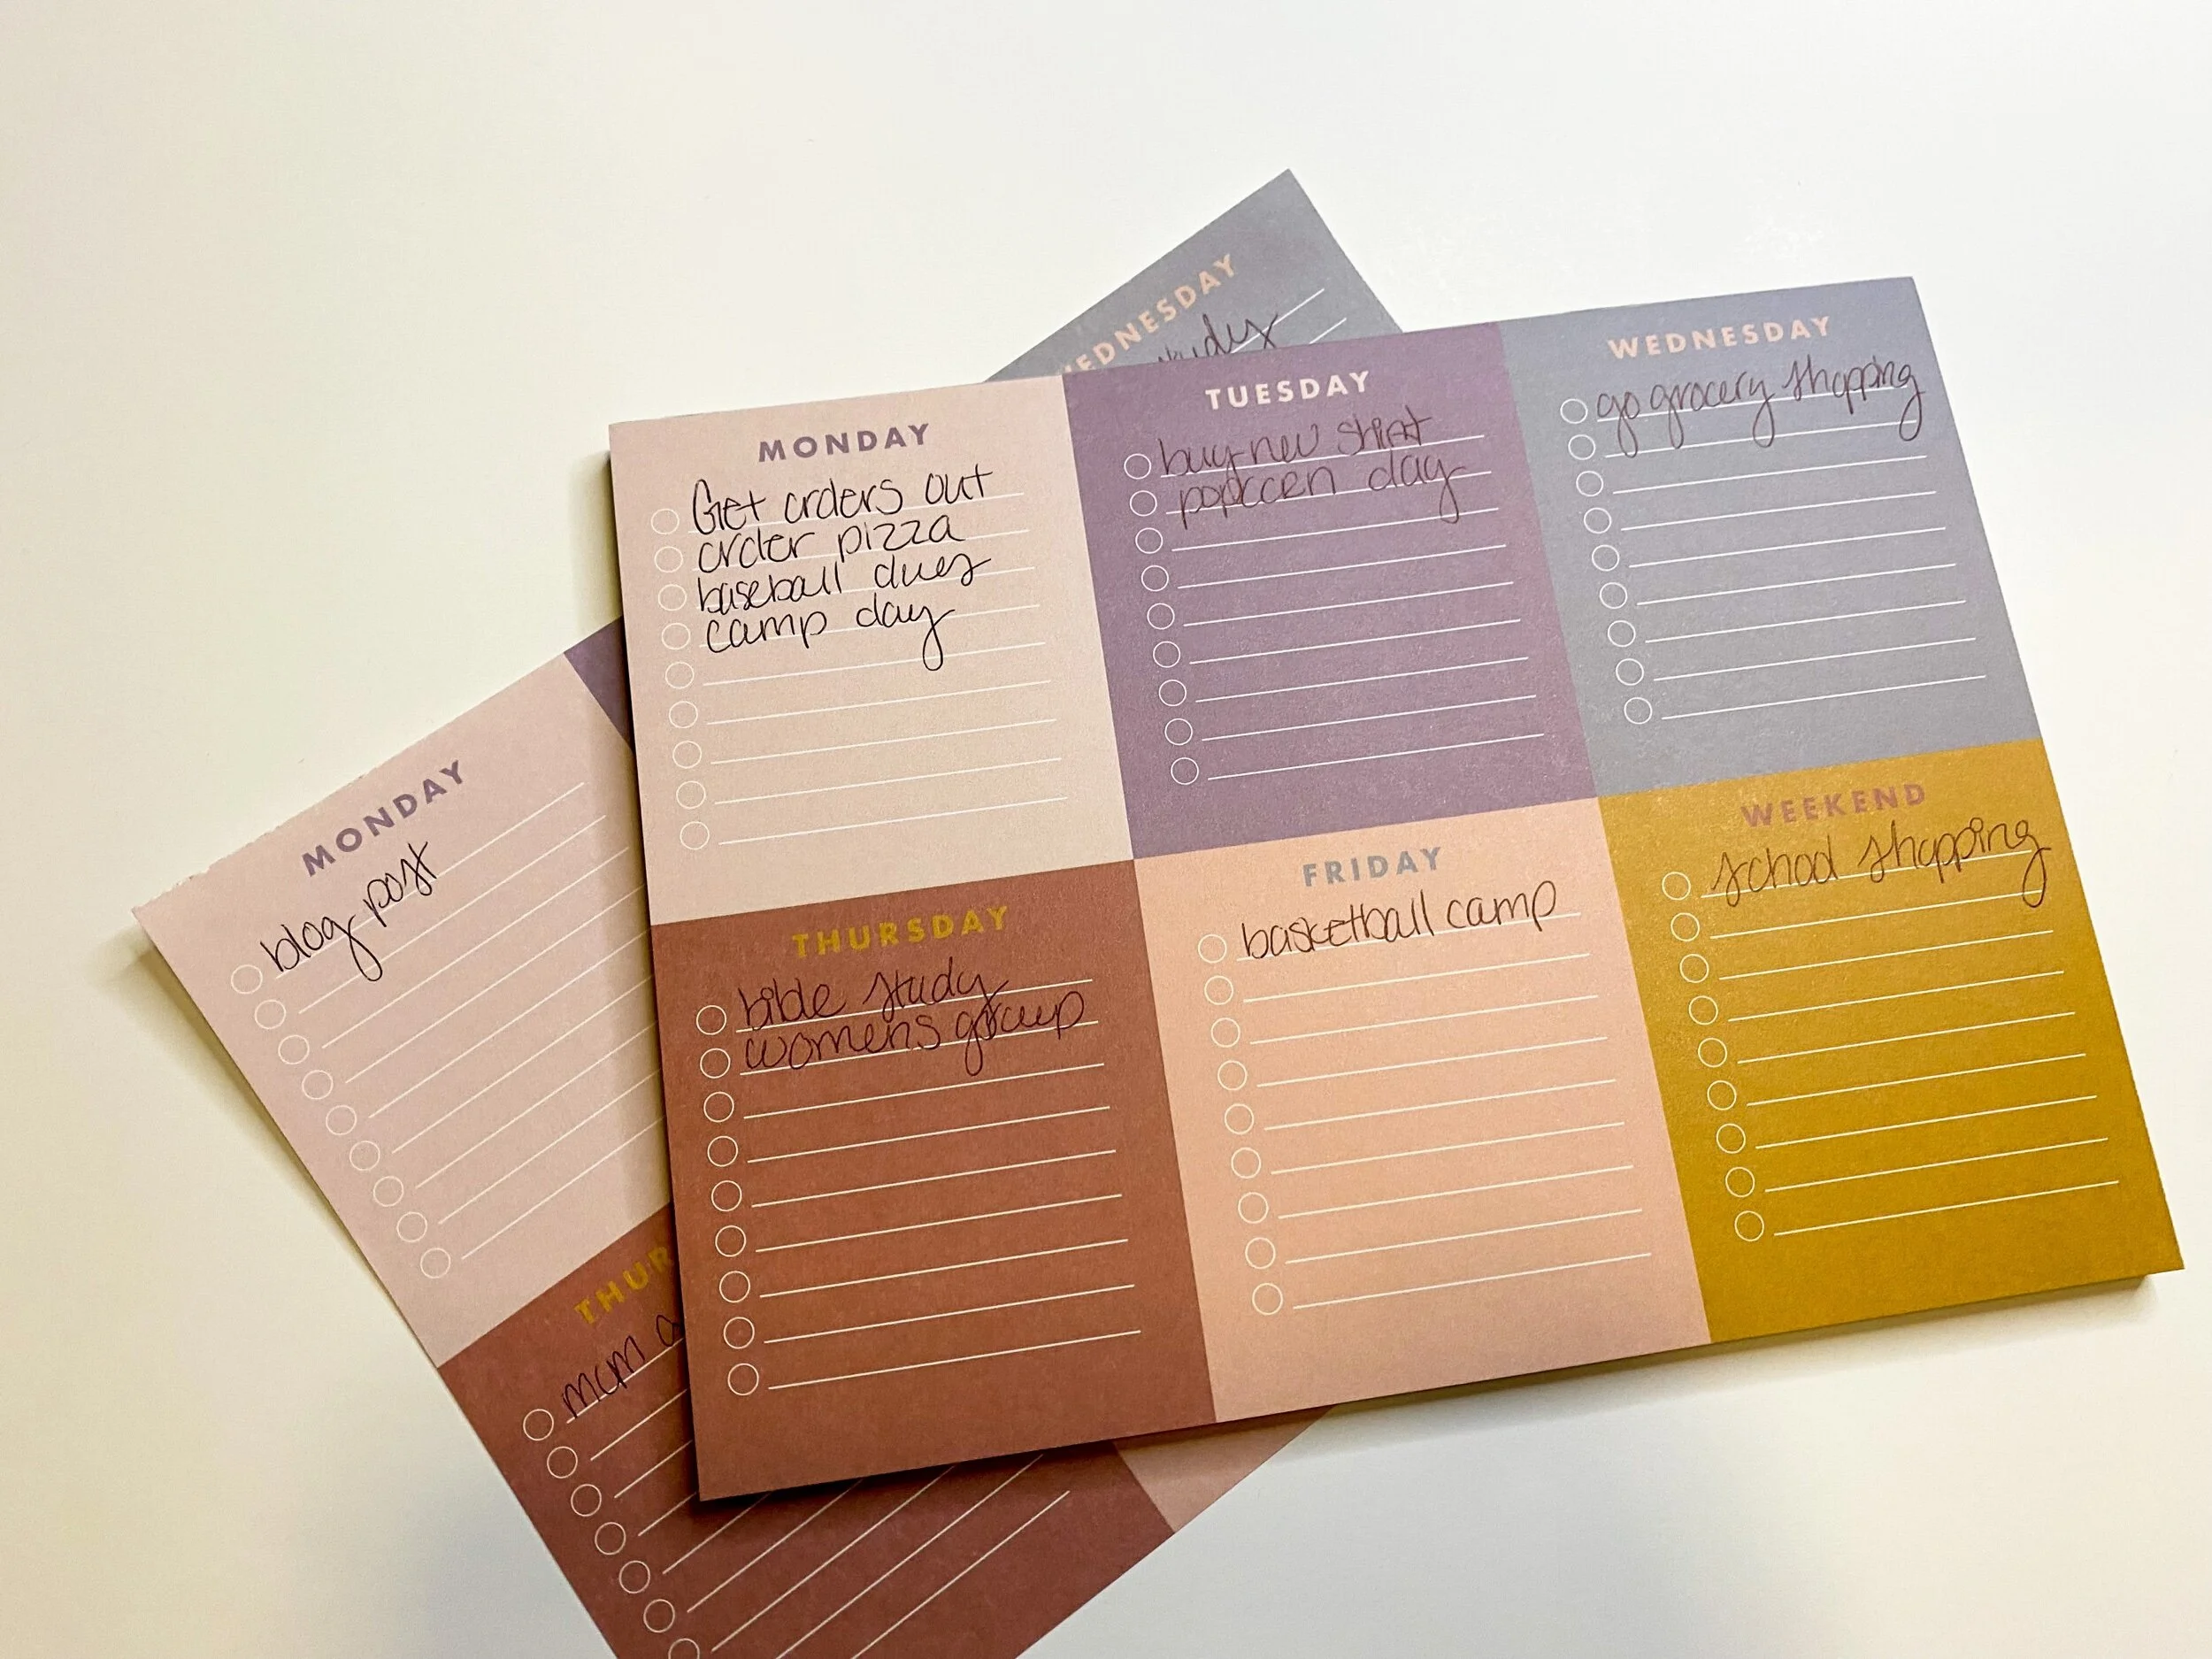 WEDNESDAY
MONDAY
Get orders out
order pizza
baseball dues
camp day
TUESDAY
buy new shirt
popcorn day
WEDNESDAY
go grocery shopping
THURSDAY
bible study
womens group
FRIDAY
basketball camp
WEEKEND
school shopping
MONDAY
blog post
THUR
mum